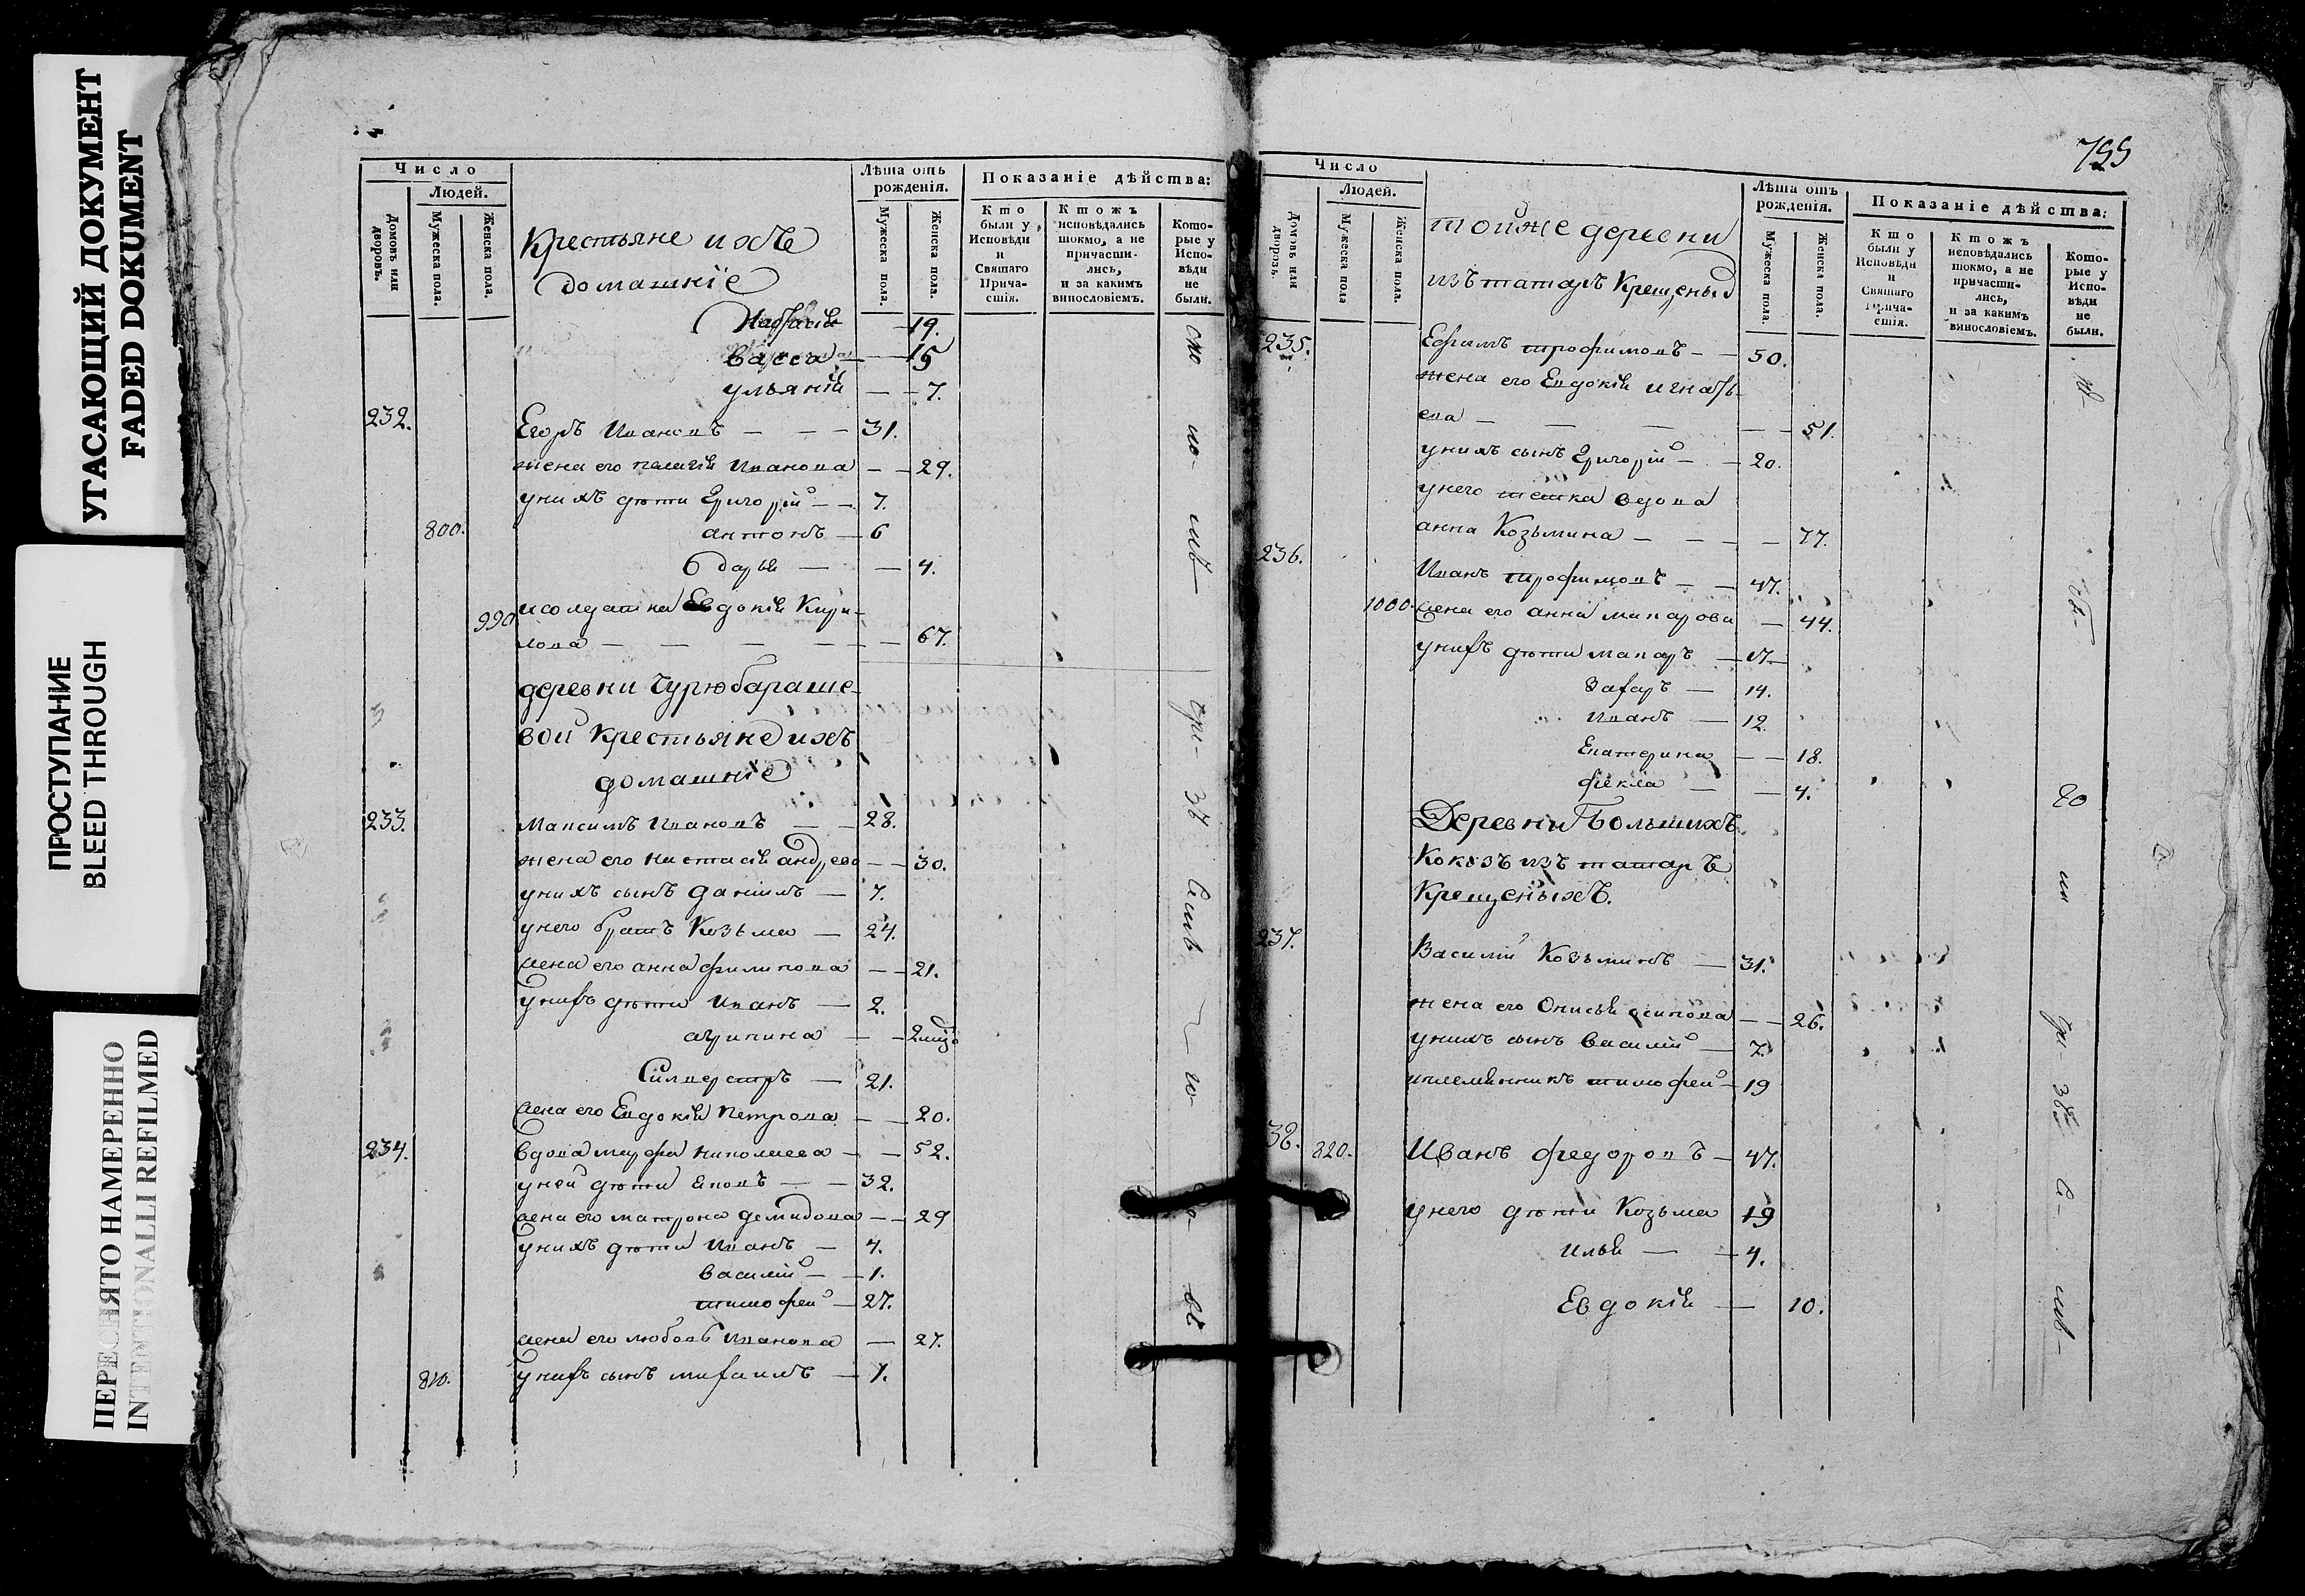 УГАСАЮЩИЙ ДОКУМЕНТ
FADED DOKUMENT
ПРОСТУПАНИЕ
BLEED THROUGH
ПЕРЕСНЯТО НАМЕРЕННО
INTENTIONALLI REFILMED
Число
Людей.
Домовъ или дворовъ.
Мужеска пола.
Женска пола.
Крестьяне ихъ
домашніе
Лѣта отъ рожденія.
Мужеска пола.
Женска пола.
Показаніе дѣйства:
Кто были у Исповѣди и Святаго Причастія.
Ктожъ исповѣдались токмо, а не причастились, и за какимъ винословіемъ.
Которые у Исповѣди не были.
19.
Васса — 15
Ульянія — 7.
232. Егоръ Ивановъ — 31.
жена его Пелагія Иванова — 29.
у нихъ дѣти Григорій — 7.
800. Антонъ — 6
Дарья — 4.
990 и солдатка Евдокія Кири-
лова — 67.
деревни Чурюбараше-
вой Крестьяне ихъ
домашніе
233. Максимъ Ивановъ — 28.
жена его Настасія Андреева — 30.
у нихъ сынъ Данилъ — 7.
у него братъ Козьма — 24.
жена его Анна Филипова — 21.
у нихъ дѣти Иванъ — 2.
Агрипина — 2
Силверстръ — 21.
жена его Евдокія Петрова — 20.
234. вдова Марфа Николаева — 52.
у ней дѣти Яковъ — 32.
жена его Матрона Демидова — 29
у нихъ дѣти Иванъ — 4.
Василій — 1.
Тимофей — 27.
жена его Любовь Иванова — 27.
810. у нихъ сынъ Михаилъ — 1.
799
Число
Людей.
Домовъ или дворовъ.
Мужеска пола
Женска пола.
той же деревни
изъ татаръ Крещеныя
Лѣта отъ рожденія.
Мужеска пола.
Женска пола.
Показаніе дѣйства:
Кто были у Исповѣди и Святаго Причастія.
Ктожъ исповѣдались токмо, а не причастились, и за какимъ винословіемъ.
Которые у Исповѣди не были.
235. Ефимъ Трофимовъ — 50.
жена его Евдокія Игнать-
ева — 51.
у нихъ сынъ Григорій — 20.
у него тетка вдова
Анна Козьмина — 77.
236. Иванъ Трофимовъ — 47.
1000. жена его Анна Макарова — 44.
у нихъ дѣти Макаръ — 17.
Захаръ — 14.
Иванъ — 12.
Екатерина — 18.
Фекла — 4.
Деревни Большихъ
Кокузъ изъ татаръ
Крещеныхъ.
237. Василій Козьминъ — 31.
жена его Онисья Осипова — 26.
у нихъ сынъ Василій — 7.
племянникъ Тимофей — 19
38. 820. Иванъ Федоровъ — 47.
у него дѣти Козьма 19
Илья — 4.
Евдокія — 10.